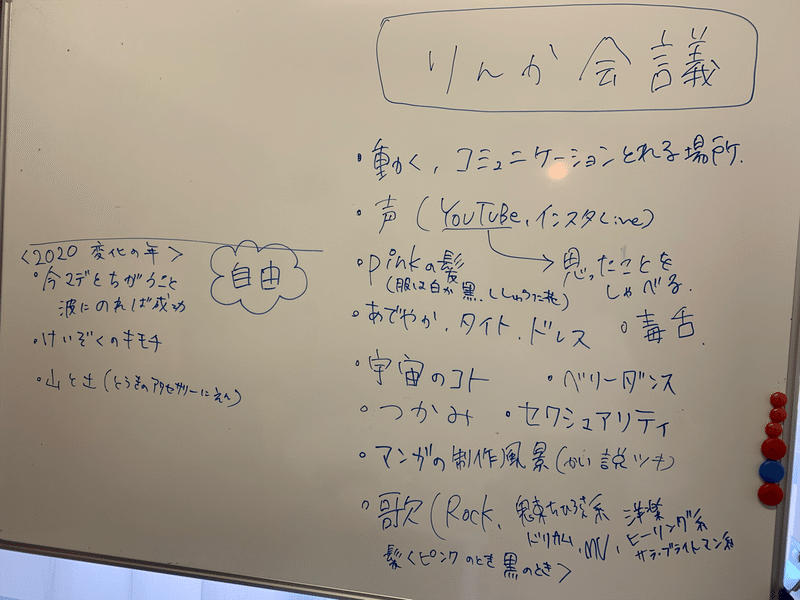 りんか会議
・動く、コミュニケーションとれる場所.
・声 (YOUTUBe, インスタLive)
→ 思ったことを
しゃべる.
・pinkの髪
(服は白か黒、ししゅうに花)
・あでやか、タイト、ドレス ・毒舌.
・宇宙のコト ・ベリーダンス
・つかみ ・セクシュアリティ
・マンガの制作風景 (かい説ツキ)
・歌 (Rock、鬼束ちひろ系 洋楽
ドリカム、MV、ヒーリング系
サラ・ブライトマン系
髪<ピンクのとき 黒のとき>
<2020 変化の年>
自由
・今マデとちがうこと
波にのれば成功
・けいぞくのキモチ
・山と土 (とうきのアクセサリーにえん)